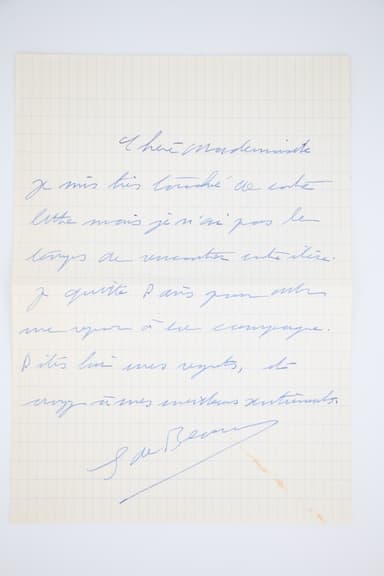 Chère Mademoiselle
Je suis très touchée de votre
lettre mais je n'ai pas le
temps de rencontrer votre élève.
Je quitte Paris pour aller
me reposer à la campagne.
Dites lui mes regrets, et
croyez à mes meilleurs sentiments.
S de Beauvoir